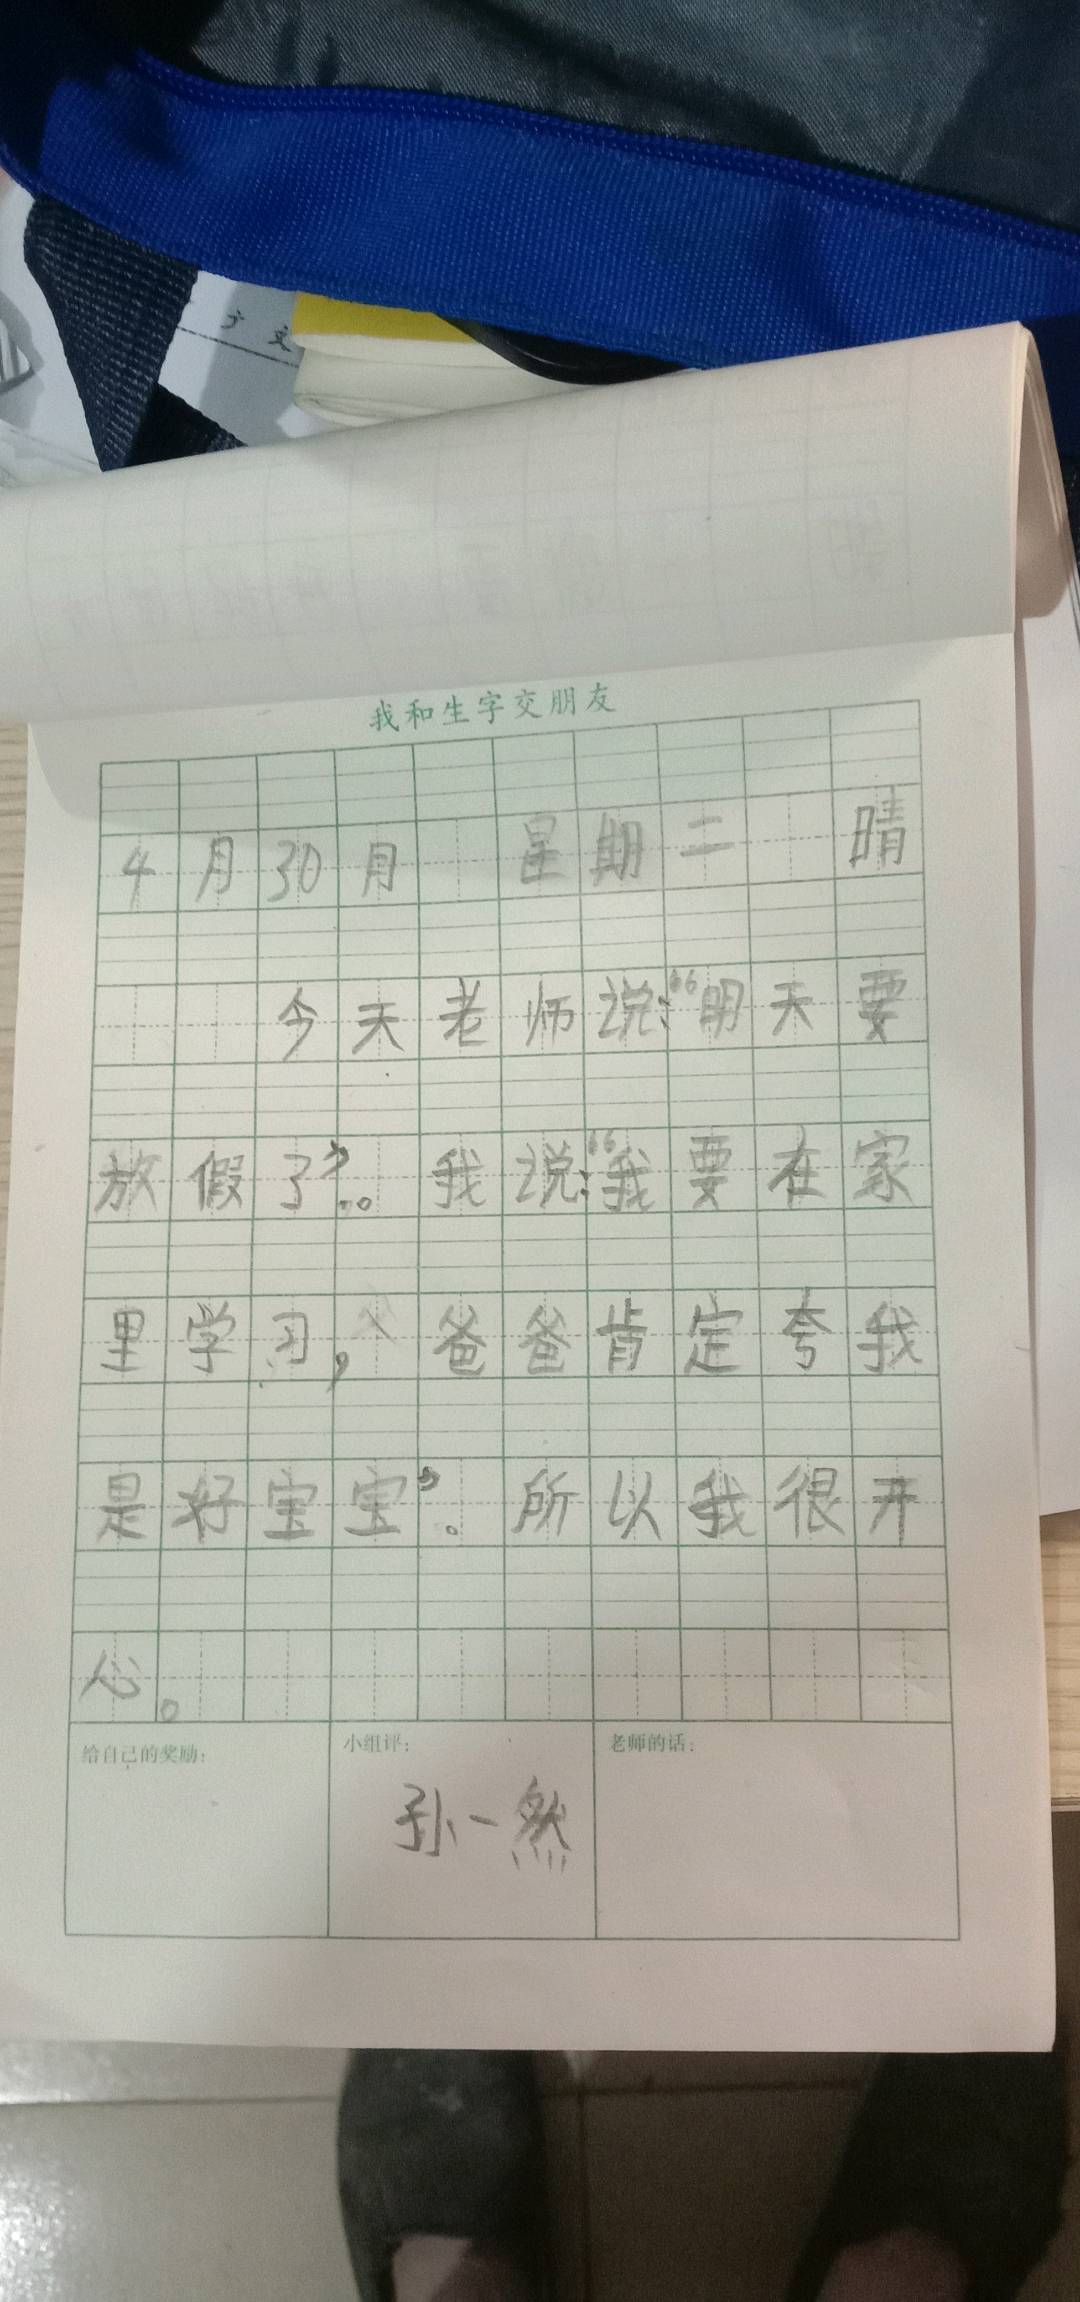 广文
我和生字交朋友
4月30月 星期二 晴
今天老师说:“明天要
放假了”..。我说:“我要在家
里学习,爸爸肯定夸我
是好宝宝”。所以我很开
心。
给自己的奖励: 小组评: 老师的话:
孙一然